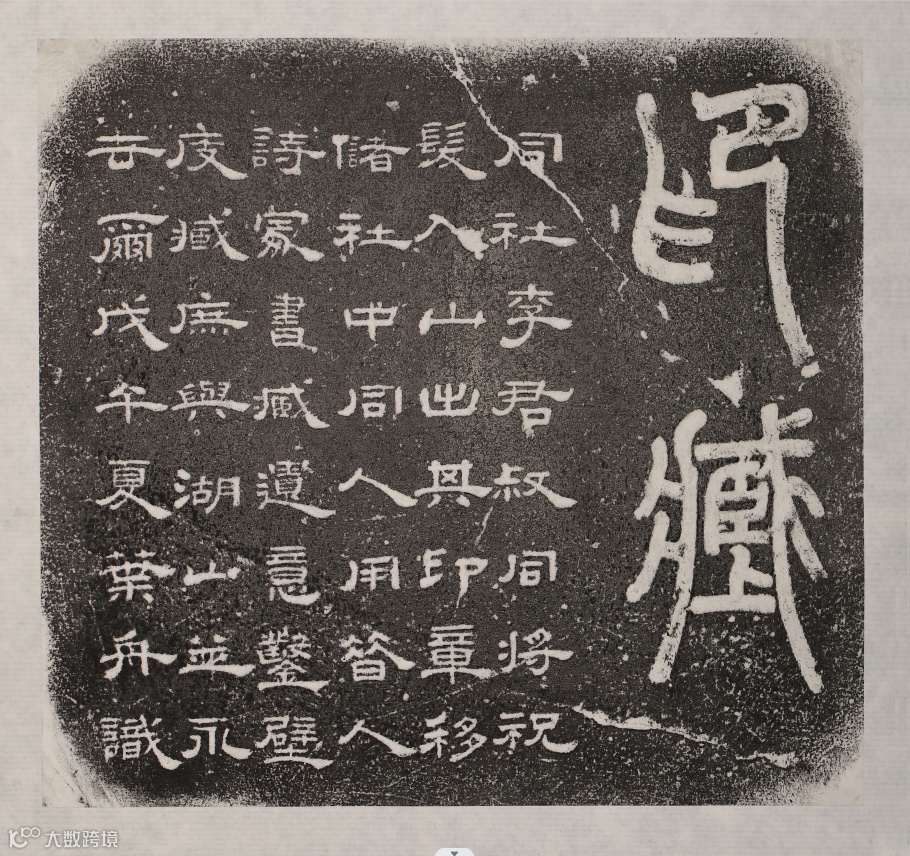 印藏
同社李君叔同將祝
髮入山出其印章移
儲社中同人用昔人
詩冢書藏遺意鑿壁
庋藏庶與湖山並永
云爾戊午夏葉舟識
大数跨境